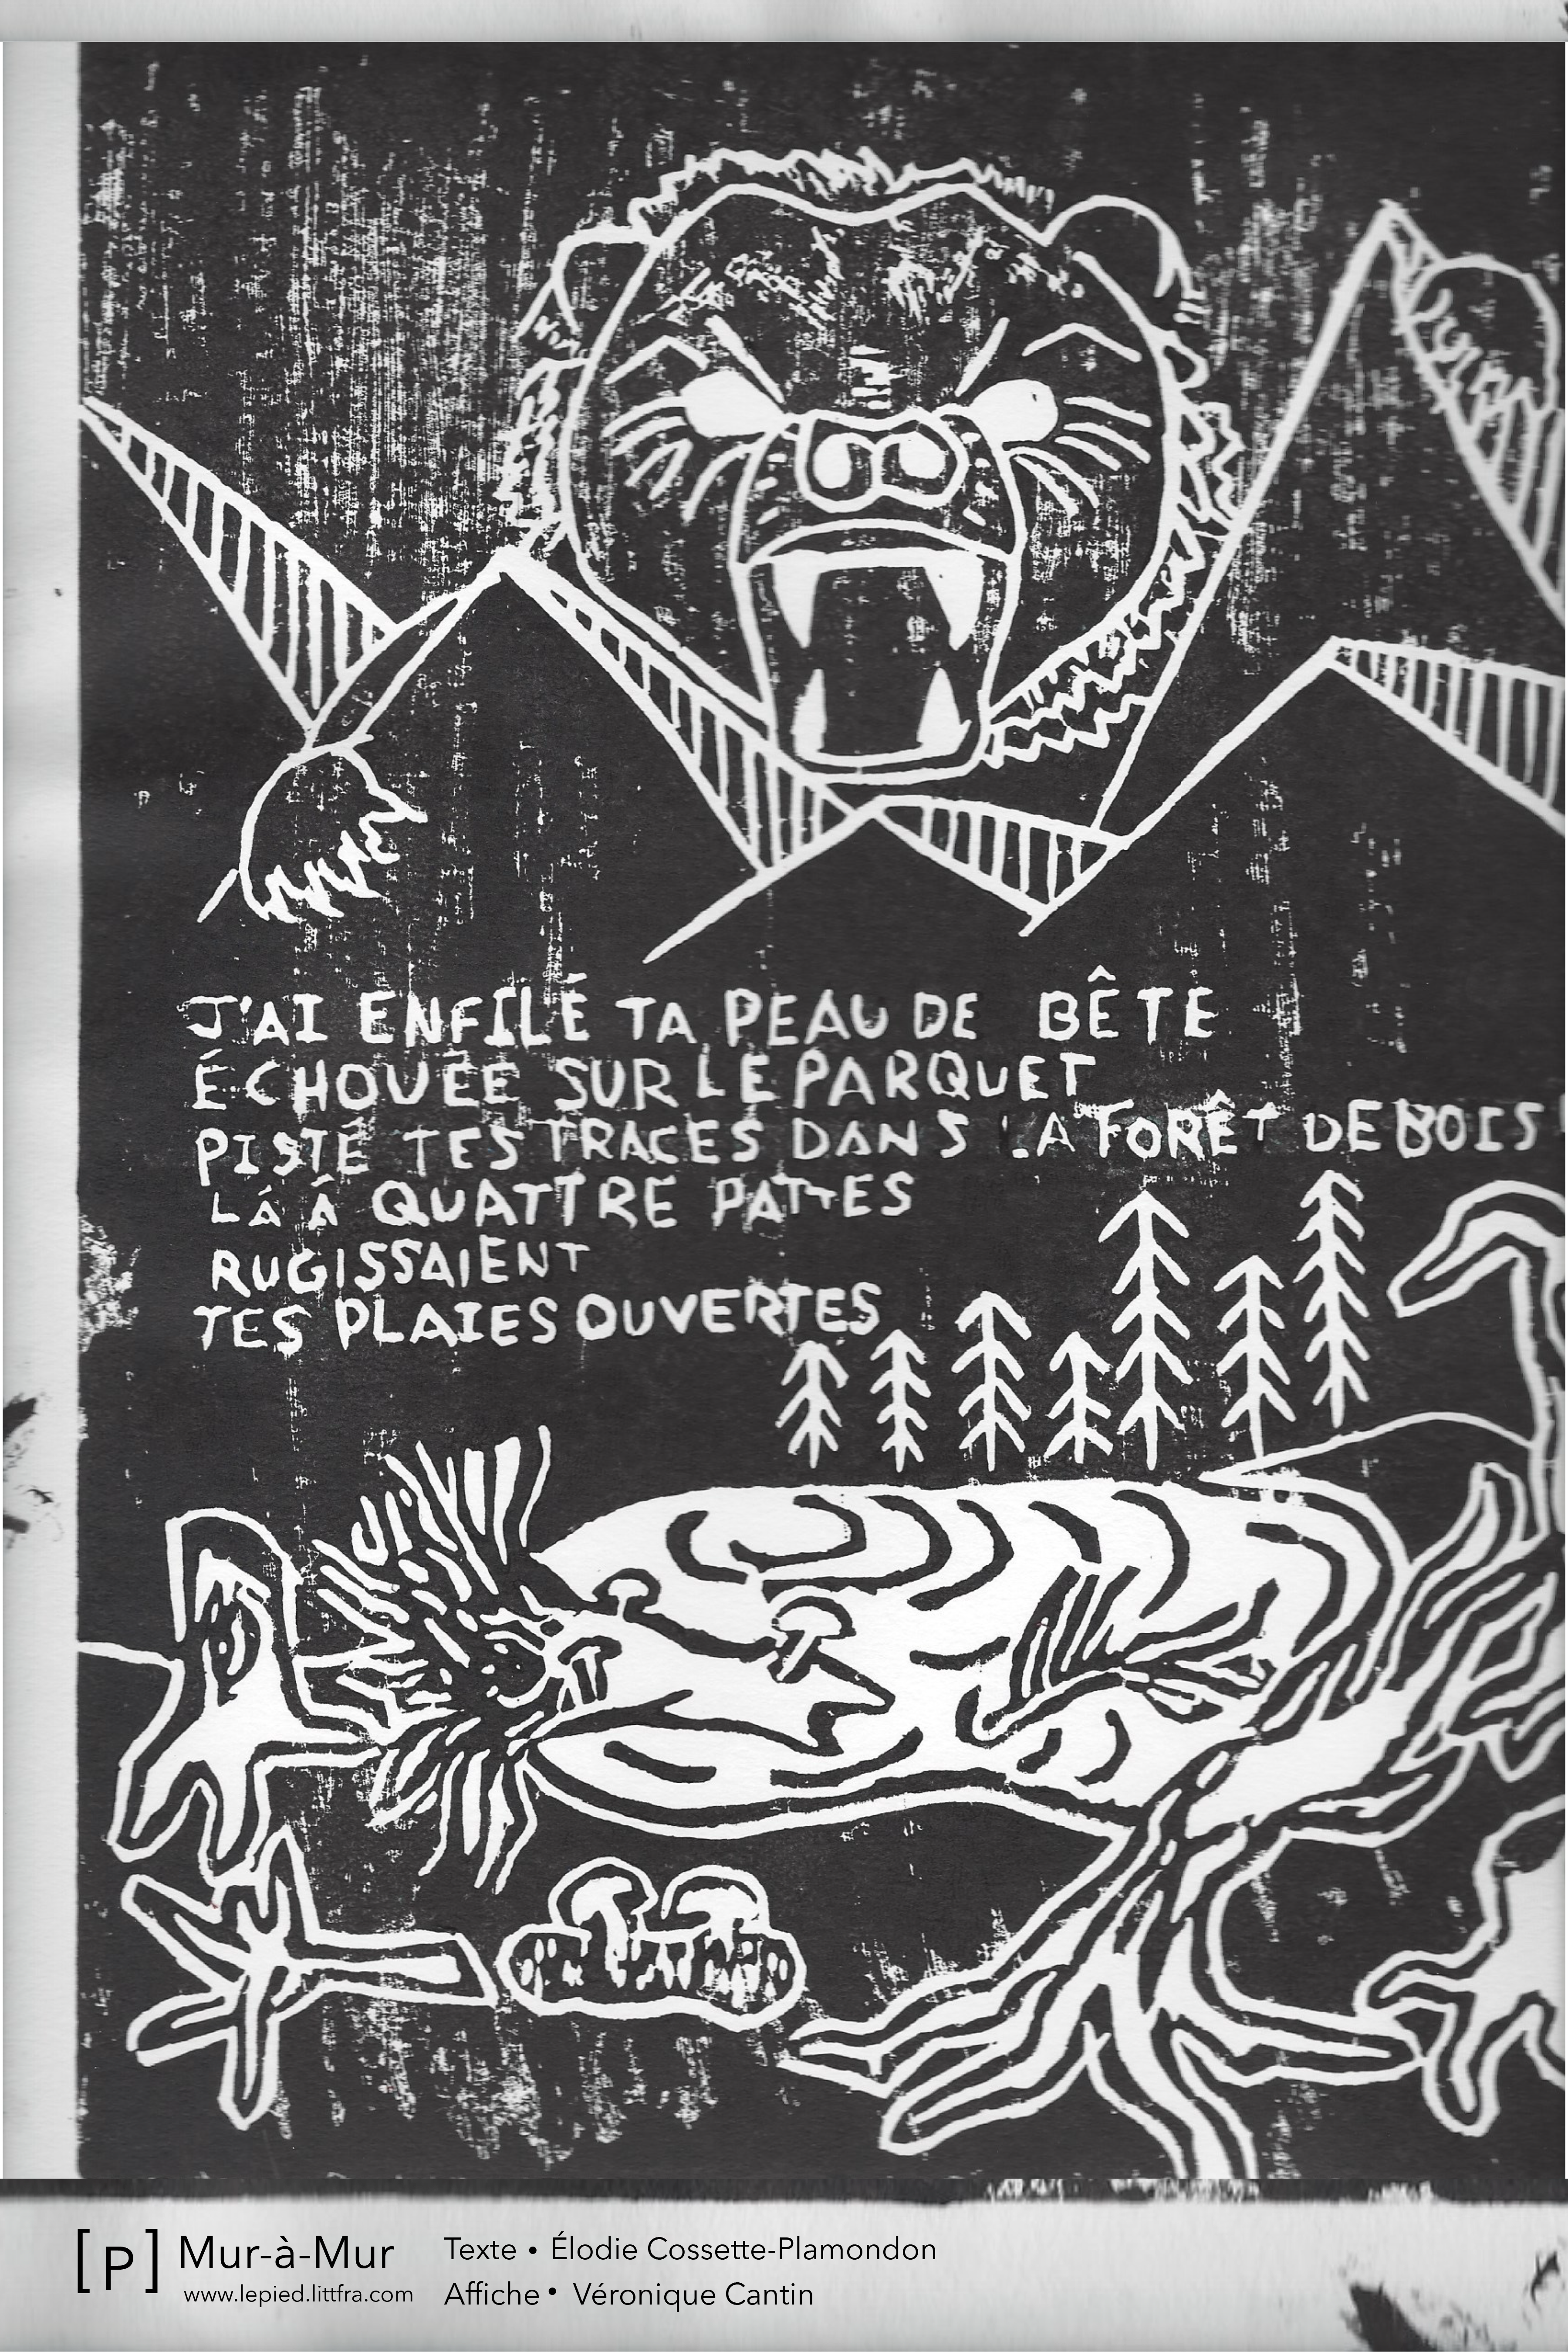 J'AI ENFILÉ TA PEAU DE BÊTE
ÉCHOUÉE SUR LE PARQUET
PISTÉ TES TRACES DANS LA FORÊT DE BOIS
LÁ Á QUATTRE PATTES
RUGISSAIENT
TES PLAIES OUVERTES
[P] Mur-à-Mur
www.lepied.littfra.com
Texte • Élodie Cossette-Plamondon
Affiche • Véronique Cantin